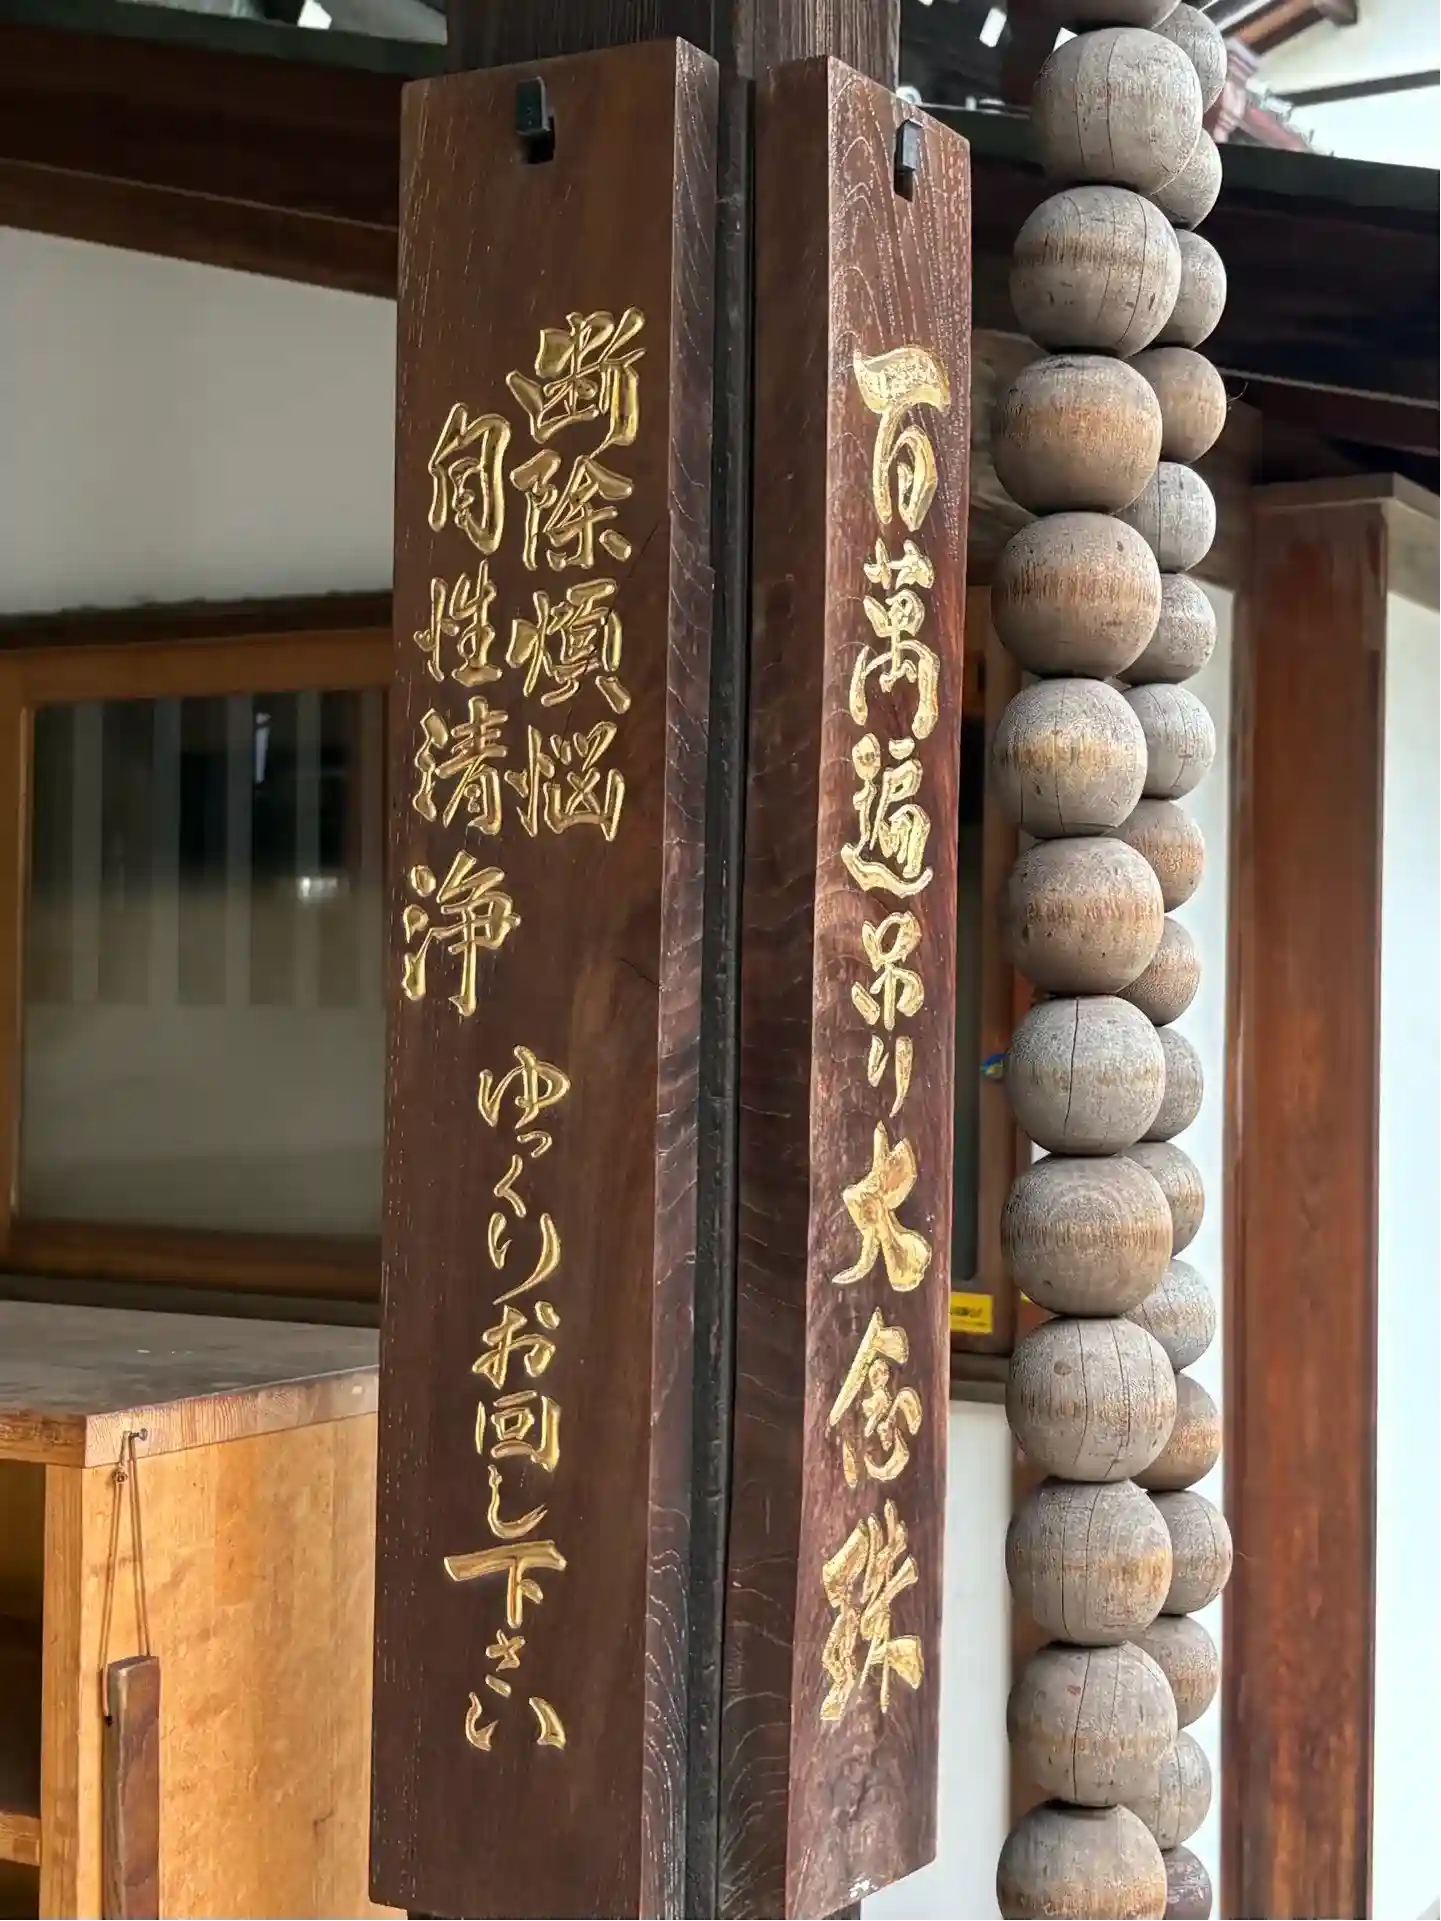 百萬遍吊り大念珠
断除煩悩
自性清浄
ゆっくりお回し下さい